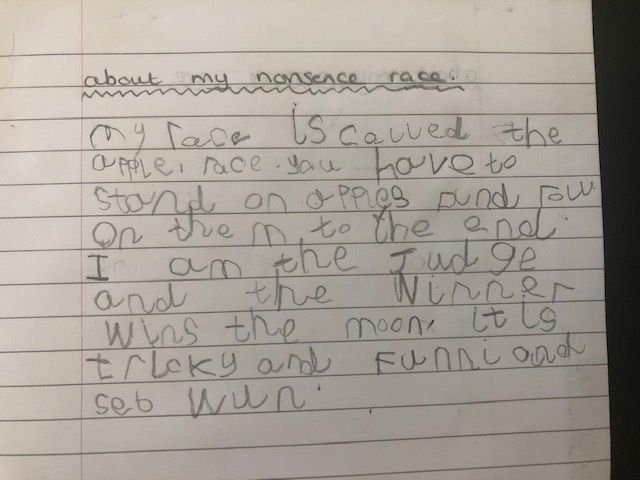 about my nonsence race.
my race is caued the
apple, race. you have to
stand on apples and row
on them to the end.
I am the Judge
and the winner
wins the moon. it is
tricky and Funni and
seb wun.